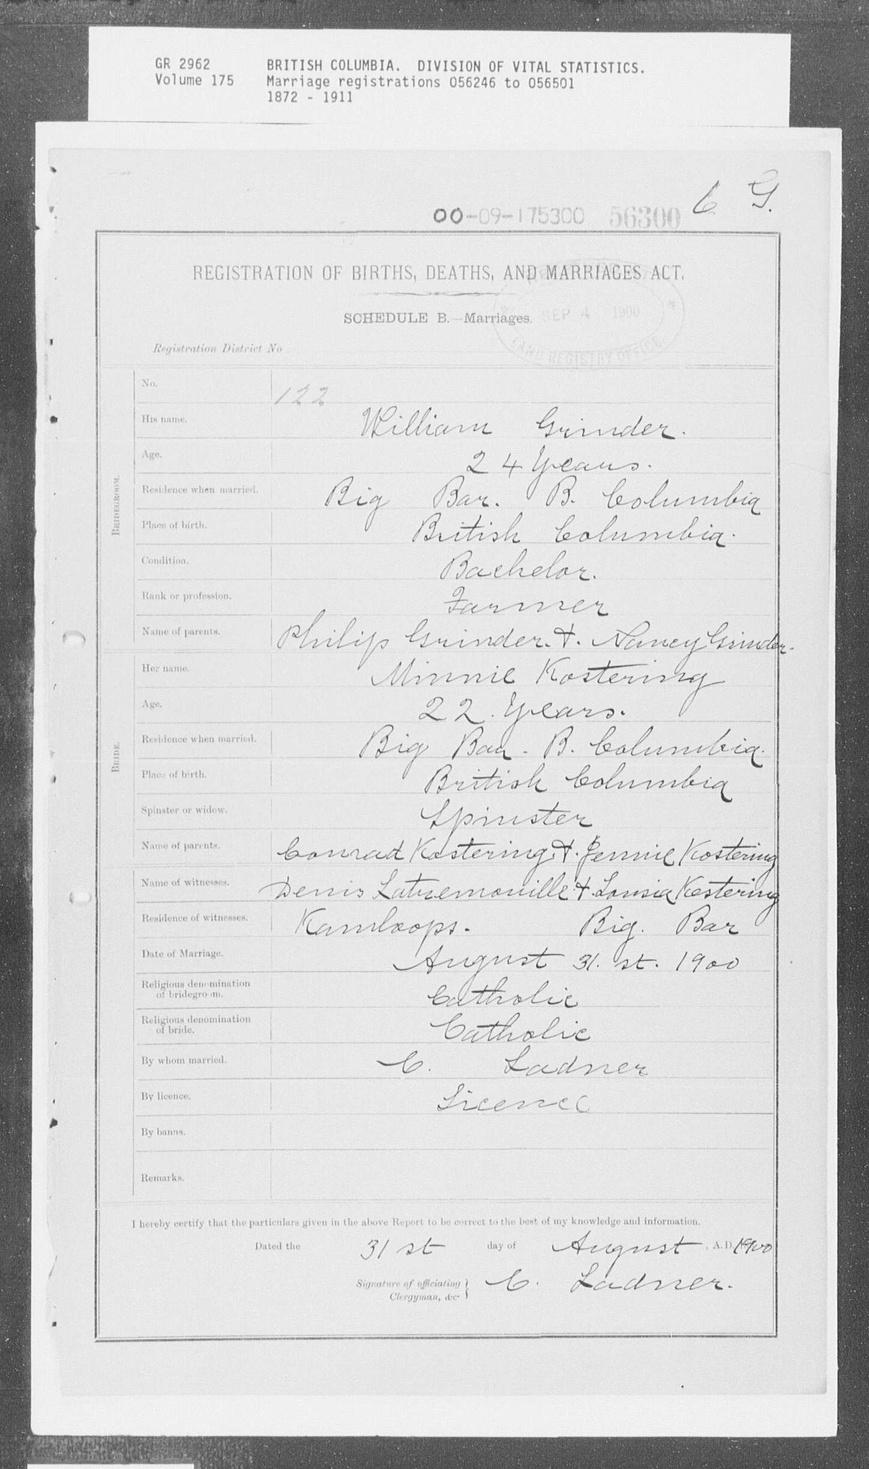 GR 2962 BRITISH COLUMBIA. DIVISION OF VITAL STATISTICS.
Volume 175 Marriage registrations 056246 to 056501
1872 - 1911
00-09-175300 56300 6 G.
REGISTRATION OF BIRTHS, DEATHS, AND MARRIAGES ACT.
SCHEDULE B.—Marriages.
SEP 4 1900
LAND REGISTRY OFFICE
Registration District No
BRIDEGROOM.
No. 122
His name. William Grinder.
Age. 24 Years.
Residence when married. Big Bar. B. Columbia
Place of birth. British Columbia.
Condition. Bachelor.
Rank or profession. Farmer
Name of parents. Philip Grinder. &. Nancy Grinder.
BRIDE.
Her name. Minnie Kostering
Age. 22. Years.
Residence when married. Big Bar. B. Columbia.
Place of birth. British Columbia
Spinster or widow. Spinster
Name of parents. Conrad Kostering &. Jennie Kostering
Name of witnesses. Denis Latremouille & Lousia Kestering
Residence of witnesses. Kamloops. Big. Bar
Date of Marriage. August 31. st. 1900
Religious denomination
of bridegroom. Catholic
Religious denomination
of bride. Catholic
By whom married. C. Ladner
By licence. Licence
By banns.
Remarks.
I hereby certify that the particulars given in the above Report to be correct to the best of my knowledge and information.
Dated the 31 st day of August , A.D. 1900
Signature of officiating
Clergyman, &c } C. Ladner.